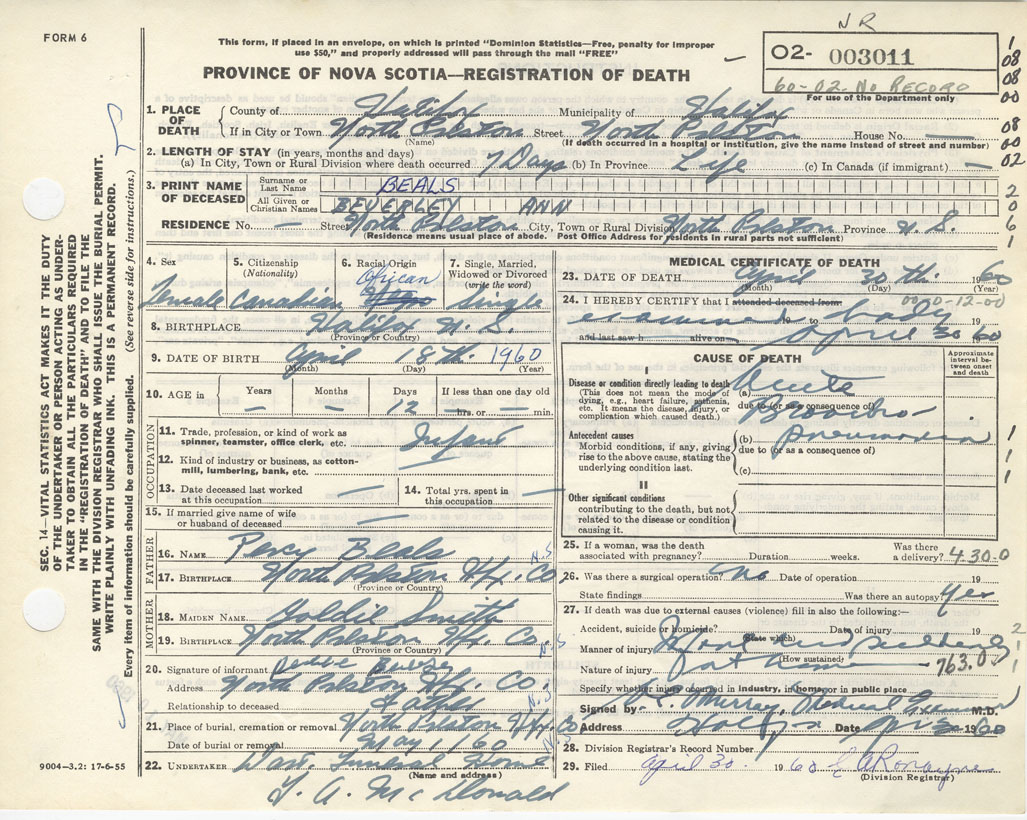 FORM 6
NR
This form, if placed in an envelope, on which is printed "Dominion Statistics—Free, penalty for improper
use $50," and properly addressed will pass through the mail "FREE"
PROVINCE OF NOVA SCOTIA—REGISTRATION OF DEATH
02- 003011
60-02 No RECORD
For use of the Department only
1. PLACE OF DEATH
County of Halifax Municipality of Halifax
If in City or Town North Preston Street North Preston House No.
(Name) (If death occurred in a hospital or institution, give the name instead of street and number)
2. LENGTH OF STAY (in years, months and days)
(a) In City, Town or Rural Division where death occurred 7 Days (b) In Province Life (c) In Canada (if immigrant) —
3. PRINT NAME OF DECEASED
Surname or Last Name BEALS
All Given or Christian Names BEVERLEY ANN
RESIDENCE No. — Street North Preston City, Town or Rural Division North Preston Province N.S.
(Residence means usual place of abode. Post Office Address for residents in rural parts not sufficient)
4. Sex 5. Citizenship (Nationality) 6. Racial Origin 7. Single, Married, Widowed or Divorced (write the word)
African
Female Canadian Single
8. BIRTHPLACE Halifax N.S.
(Province or Country)
9. DATE OF BIRTH April 18th 1960
(Month) (Day) (Year)
10. AGE in Years — Months — Days 12 If less than one day old — hrs. or — min.
OCCUPATION
11. Trade, profession, or kind of work as spinner, teamster, office clerk, etc. Infant
12. Kind of industry or business, as cotton-mill, lumbering, bank, etc.
13. Date deceased last worked at this occupation —
14. Total yrs. spent in this occupation —
15. If married give name of wife or husband of deceased —
FATHER
16. NAME Percy Beals
17. BIRTHPLACE North Preston Hfx. Co N.S
(Province or Country)
MOTHER
18. MAIDEN NAME Goldie Smith
19. BIRTHPLACE North Preston Hfx. Co. N.S
(Province or Country)
20. Signature of informant
Address North Preston Hfx. Co. N.S
Relationship to deceased Father
21. Place of burial, cremation or removal North Preston Hfx. Co N.S
Date of burial or removal May 1/60
22. UNDERTAKER Funeral Home
(Name and address)
McDonald
9004—3.2: 17-6-55
MEDICAL CERTIFICATE OF DEATH
23. DATE OF DEATH April 30th 1960
(Month) (Day) (Year)
24. I HEREBY CERTIFY that I attended deceased from 0090-12-00
examined 19 to body
and last saw h alive on April 30 60
CAUSE OF DEATH
Approximate interval between onset and death
I
Disease or condition directly leading to death
(This does not mean the mode of dying, e.g., heart failure, asthenia, etc. It means the disease, injury, or complication which caused death.)
(a) Acute
due to (or as a consequence of)
Broncho-
Antecedent causes
Morbid conditions, if any, giving rise to the above cause, stating the underlying condition last.
(b) pneumonia
due to (or as a consequence of)
(c)
II
Other significant conditions contributing to the death, but not related to the disease or condition causing it.
25. If a woman, was the death associated with pregnancy? Duration weeks. Was there a delivery? 4.30.0
26. Was there a surgical operation? No Date of operation 19
State findings Was there an autopsy? Yes
27. If death was due to external causes (violence) fill in also the following:—
Accident, suicide or homicide? Date of injury 19
(State which)
Manner of injury
(How sustained)
Nature of injury 763.0
Specify whether injury occurred in industry, in home, or in public place
Signed by Murray, Medical Examiner M.D.
Address Halifax Date 1960
28. Division Registrar's Record Number
29. Filed April 30. 1960
(Division Registrar)
SEC. 14—VITAL STATISTICS ACT MAKES IT THE DUTY
OF THE UNDERTAKER OR PERSON ACTING AS UNDER-
TAKER TO OBTAIN ALL THE PARTICULARS REQUIRED
IN THE "REGISTRATION OF DEATH" AND TO FILE THE
SAME WITH THE DIVISION REGISTRAR WHO SHALL ISSUE THE BURIAL PERMIT.
WRITE PLAINLY WITH UNFADING INK. THIS IS A PERMANENT RECORD.
Every item of information should be carefully supplied. (See reverse side for instructions.)
1
08
08
00
08
00
02
2
0
6
1
1
1
1
2
1
1